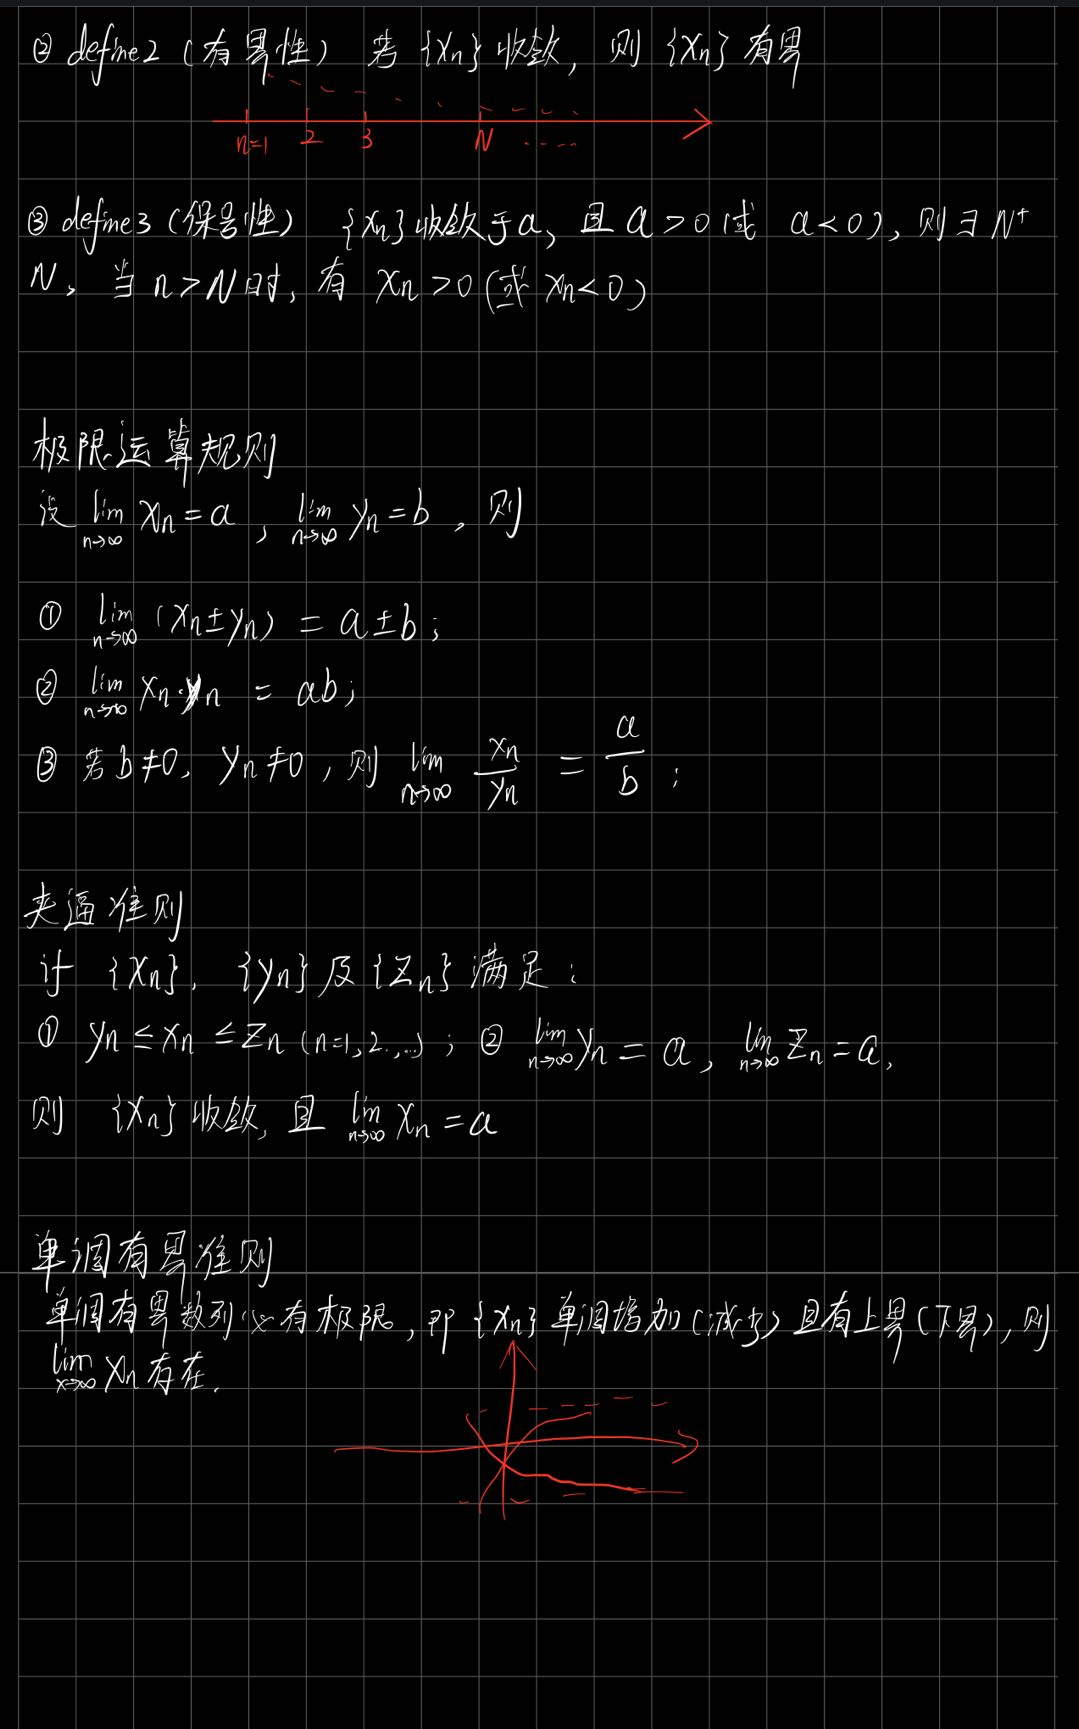 ② define2 (有界性) 若 {xn} 收敛, 则 {xn} 有界
n=1 2 3 N ....
③ define3 (保号性) {xn}收敛于a, 且 a>0 (或 a<0), 则∃ N⁺
N, 当 n>N时, 有 xn>0 (或 xn<0)
极限运算规则
设 lim n→∞ xn=a, lim n→∞ yn=b, 则
① lim n→∞ (xn±yn) = a±b;
② lim n→∞ xn·yn = ab;
③ 若b≠0, yn≠0, 则 lim n→∞ xn/yn = a/b;
夹逼准则
{xn}, {yn}及{zn}满足:
① yn≤xn≤zn (n=1,2,...); ② lim n→∞ yn=a, lim n→∞ zn=a,
则 {xn}收敛, 且 lim n→∞ xn=a
单调有界准则
单调有界数列必有极限, 即{xn}单调增加(减少)且有上界(下界), 则
lim x→∞ xn存在.